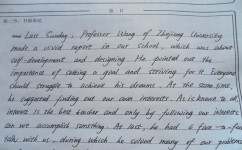 Last Sunday, Professor Wang of Zhejiang University
made a vivid report in our school, which was about
self-development and designing. He pointed out the
importance of setting a goal and striving for it. Everyone
should struggle to achieve his dreams. At the same time,
he suggested finding out our own interests. As is known to all,
interest is the best teacher and only by following our interests
can we accomplish something. At last, he had a face-to-f
talk with us, during which he solved many of our problems